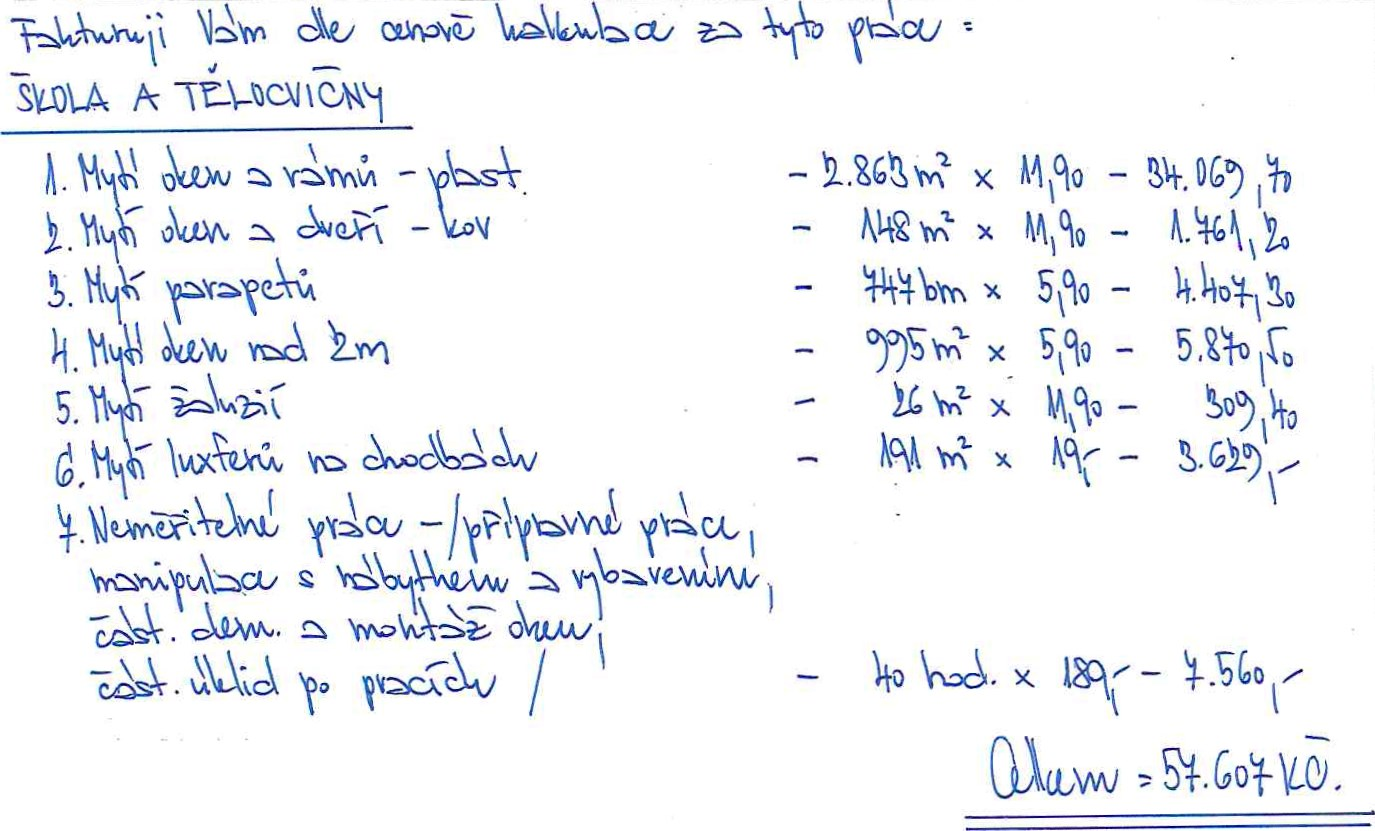 Fakturuji Vám dle cenové kalkulace za tyto práce =
ŠKOLA A TĚLOCVIČNY
1. Mytí oken a rámů - plast. - 2.863 m² x 11,90 - 34.069,70
2. Mytí oken a dveří - kov - 148 m² x 11,90 - 1.761,20
3. Mytí parapetů - 747 bm x 5,90 - 4.407,30
4. Mytí oken nad 2m - 995 m² x 5,90 - 5.870,50
5. Mytí žaluzií - 26 m² x 11,90 - 309,40
6. Mytí luxferů na chodbách - 191 m² x 19,- - 3.629,-
7. Neměřitelné práce - /přípravné práce,
manipulace s nábytkem a vybavením,
část. dem. a montáž oken,
část. úklid po pracích / - 40 hod. x 189,- - 7.560,-
Celkem = 57.607 KČ.